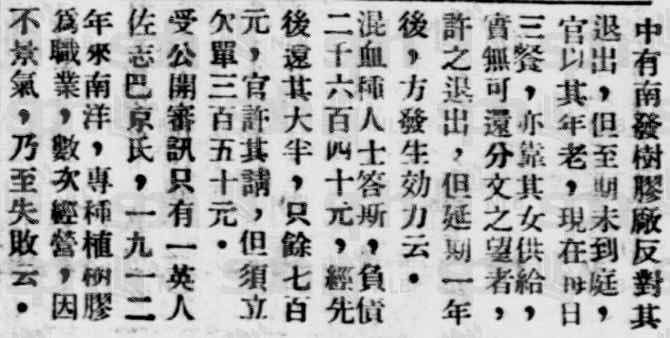 中有南發樹膠廠反對其
退出，但至期未到庭，
官以其年老，現在每日
三餐，亦靠其女供給，
實無可還分文之望者，
許之退出，但延期一年
後，方發生効力云。
混血種人士答斯，負債
二千六百四十元，經先
後還其大半，只餘七百
元，官許其請，但須立
欠單三百五十元。
受公開審訊只有一英人
佐志巴京氏，一九一二
年來南洋，專種植樹膠
為職業，數次經營，因
不景氣，乃至失敗云。